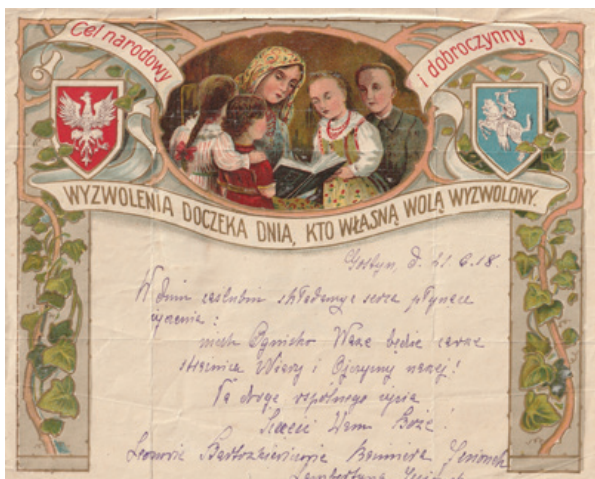 Cel narodowy
i dobroczynny.
WYZWOLENIA DOCZEKA DNIA, KTO WŁASNĄ WOLĄ WYZWOLONY.
Gostyn, d. 21.6.18.
W dniu zaślubin składamy serca płynące
życzenia:
niech Ognisko Wasze będzie zawsze
strażnicą Wiary i Ojczyzny naszej!
Na drogę wspólnego życia
Szczęść Wam Boże!